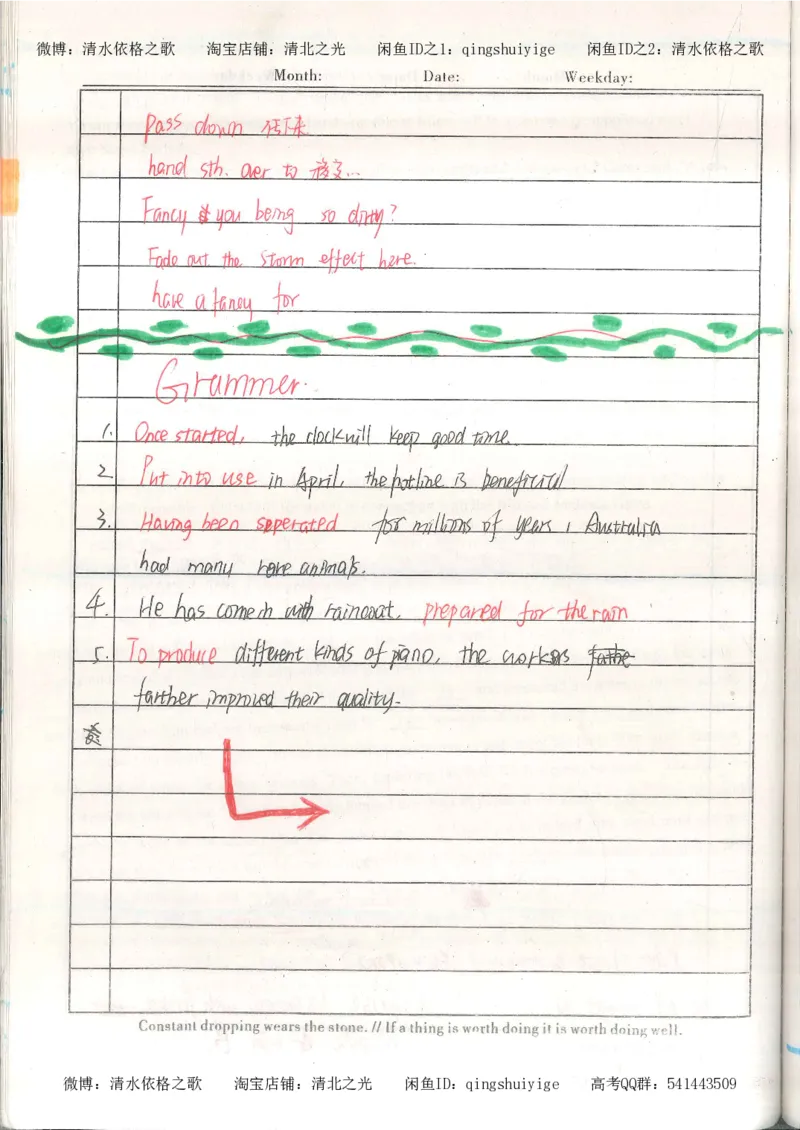 微博：清水依格之歌 淘宝店铺：清北之光 闲鱼ID之1：qingshuiyige 闲鱼ID之2：清水依格之歌
Month: Date: Weekday:
Pass down 传下来
hand sth. over to 移交...
Fancy you being so dirty?
Fade out the storm effect here.
have a fancy for
Grammer.
1. Once started, the clock will keep good time.
2. Put into use in April, the hotline is beneficial
3. Having been seperated for millions of years, Australia
had many rare animals.
4. He has come in with raincoat, prepared for the rain
5. To produce different kinds of piano, the workers
farther improved their quality.
Constant dropping wears the stone. // If a thing is worth doing it is worth doing well.
微博：清水依格之歌 淘宝店铺：清北之光 闲鱼ID：qingshuiyige 高考QQ群：541443509